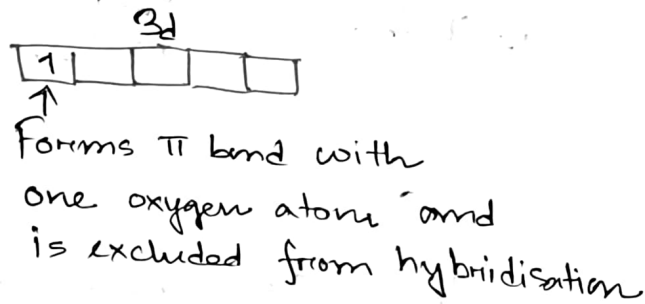 3d
1
Forms π bond with
one oxygen atom and
is excluded from hybridisation